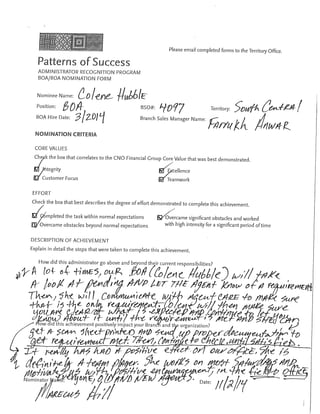 Please email completed forms to the Territory Office.
Patterns of Success
ADMINISTRATOR RECOGNITION PROGRAM
BOA/ROA NOMINATION FORM
Nominee Name: Colene Hubble
Position: BOA BSO#: 4097 Territory: South Central
BOA Hire Date: 3/2014 Branch Sales Manager Name: Farrukh Anwar
NOMINATION CRITERIA
CORE VALUES
Check the box that correlates to the CNO Financial Group Core Value that was best demonstrated.
Integrity Excellence
Customer Focus Teamwork
EFFORT
Check the box that best describes the degree of effort demonstrated to complete this achievement.
Completed the task within normal expectations Overcame significant obstacles and worked
Overcame obstacles beyond normal expectations with high intensity for a significant period of time
DESCRIPTION OF ACHIEVEMENT
Explain in detail the steps that were taken to complete this achievement.
How did this administrator go above and beyond their current responsibilities?
A lot of times, our BOA (Colene Hubble) will take
A look At pending AND Let THE Agent Know of a requirement
Then, She will Communicate with Agent CARE to make sure
that is the only requirement. Colene will then make sure
you are clear of what is expected AND continue to let you
Know About it until the requirement is met AND
How did this achievement positively impact your Branch and the organization?
get a scan sheet printed AND send up proper documentation to
get requirement met. Then, continue to check until satisfied.
It really has had a positive effect on our office. She is
definitely a team player. She works on most Saturdays AND
motivates us with positive encouragement, in the field & office
everyone, OLD AND NEW Agents.
Nominator Date: 11/2/14
Marecus Hill